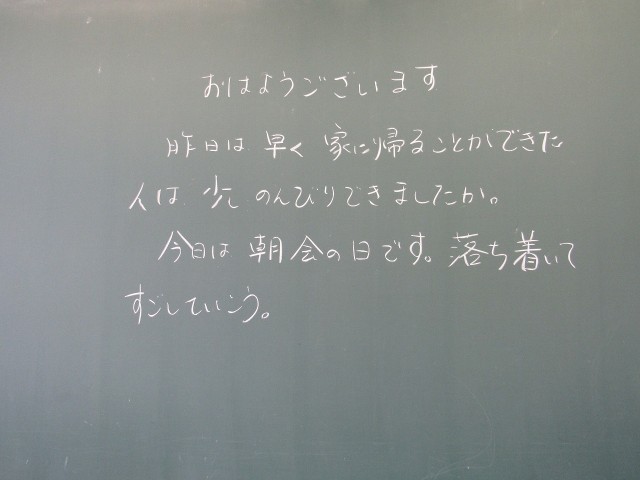 おはようございます
昨日は早く家に帰ることができた
人は少しのんびりできましたか。
今日は朝会の日です。落ち着いて
すごしていこう。